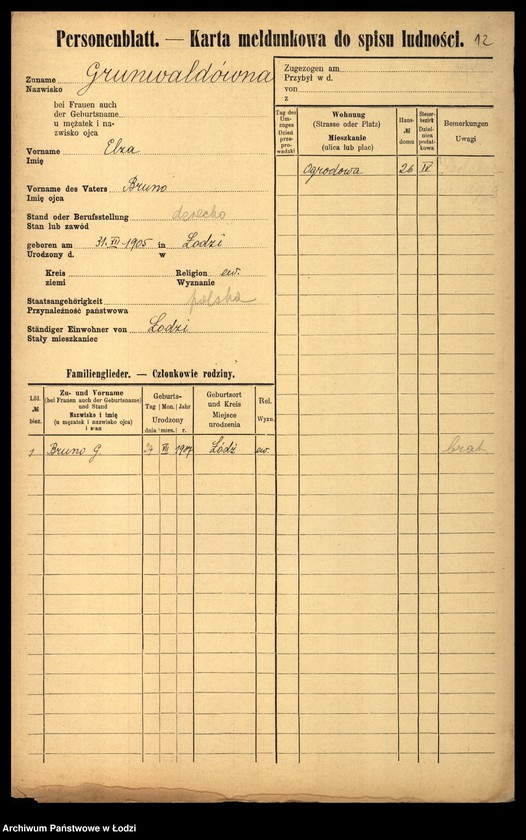 Personenblatt. — Karta meldunkowa do spisu ludności. 12
Zuname Grunwaldówna
Nazwisko
bei Frauen auch
der Geburtsname
u mężatek i na-
zwisko ojca
Vorname Elza
Imię
Vorname des Vaters Bruno
Imię ojca
Stand oder Berufsstellung dziecko
Stan lub zawód
geboren am 31. XII 1905 in Łodzi
Urodzony d. w
Kreis Religion ew.
ziemi Wyznanie
Staatsangehörigkeit polska
Przynależność państwowa
Ständiger Einwohner von Łodzi
Stały mieszkaniec
Zugezogen am
Przybył w d.
von
z
Tag des Um-zuges Dzień prze-prowadzki
Wohnung
(Strasse oder Platz)
Mieszkanie
(ulica lub plac)
Haus-
№
domu
Steuer-
bezirk
Dziel-
nica
podat-
kowa
Bemerkungen
Uwagi
Ogrodowa 26 IV
Familienglieder. — Członkowie rodziny.
Lfd.
№
bież.
Zu- und Vorname
(bei Frauen auch der Geburtsname)
und Stand
Nazwisko i imię
(u mężatek i nazwisko ojca)
i stan
Geburts-
Tag Mon. Jahr
Urodzony
dnia mies. r.
Geburtsort
und Kreis
Miejsce
urodzenia
Rel.
Wyzn.
1 Bruno G. VII 1907 Łódź ew. brat
Archiwum Państwowe w Łodzi